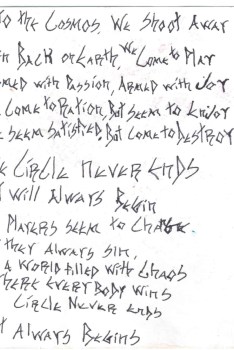 to the Cosmos, We Shoot Away
Back on Earth, We Come to Play
with Passion, Armed with Joy
Come to Ration, But Seem to Enjoy
Seem Satisfied, But Come to Destroy
Circle Never Ends
Will Always Begin
Players Seem to Change
they Always Sin,
a World filled with Chaos
Where Everybody Wins
Circle Never Ends
Always Begins